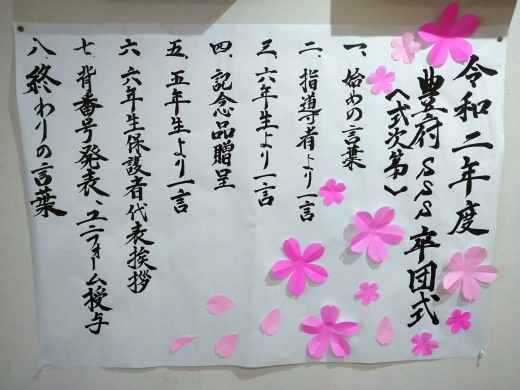 令和二年度
豊府SSS卒団式
〈式次第〉
一、始めの言葉
二、指導者より一言
三、六年生より一言
四、記念品贈呈
五、五年生より一言
六、六年生保護者代表挨拶
七、背番号発表、ユニフォーム授与
八、終わりの言葉